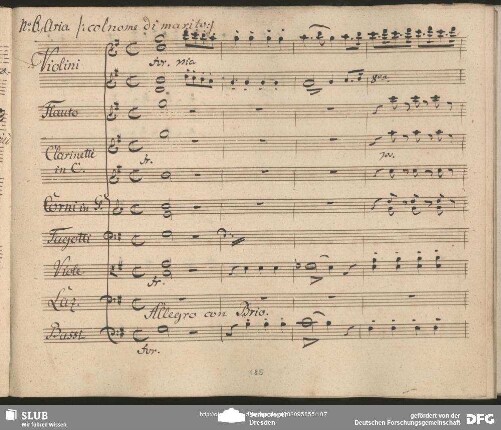 Nº 6. Aria /: col nome di marito :/
Violini
for. pia.
Flauto
Clarinetti
in C.
fr.
Corni in G.
Fagotti
Viole
fr.
Allegro con Brio.
Bassi
for.
SLUB
Wir führen Wissen.
Dresden
gefördert von der
Deutschen Forschungsgemeinschaft
DFG